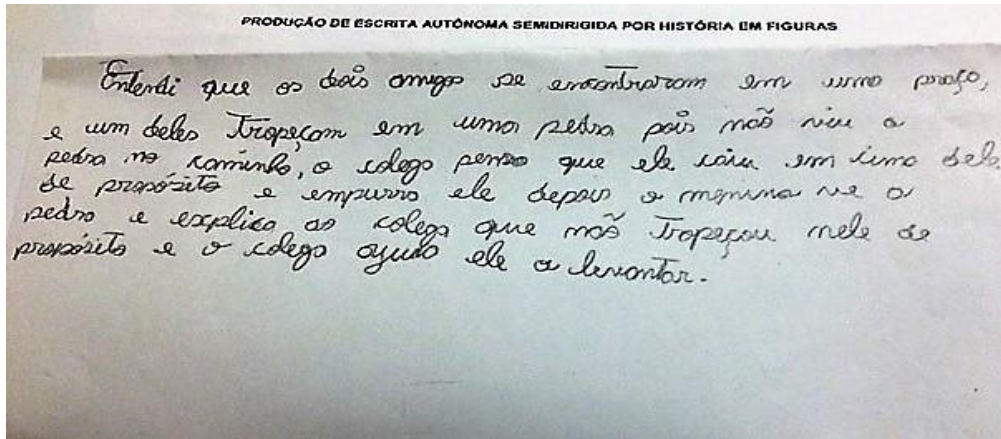 PRODUÇÃO DE ESCRITA AUTÔNOMA SEMIDIRIGIDA POR HISTÓRIA EM FIGURAS
Entendi que os dois amigos se encontraram em uma praça,
e um deles tropeçam em uma pedra pois não viu a
pedra no caminho, o colega pensa que ele caiu em cima dele
de propósito e empurra ele depois o menino ve a
pedra e explica ao colega que não tropeçou nele de
propósito e o colega ajuda ele a levantar.